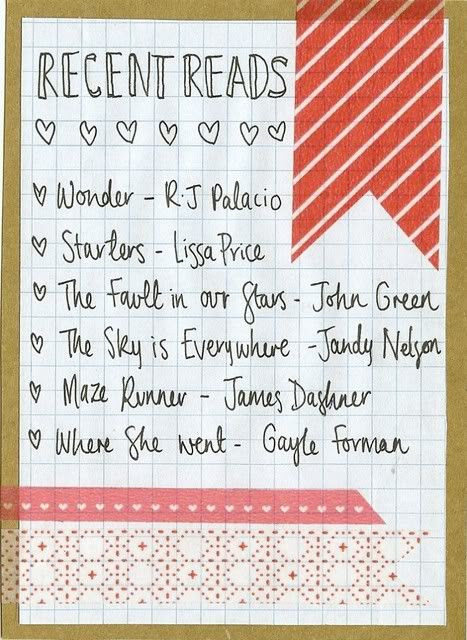 RECENT READS
Wonder - R.J Palacio
Starters - Lissa Price
The Fault in our Stars - John Green
The Sky is Everywhere - Jandy Nelson
Maze Runner - James Dashner
Where She went - Gayle Forman